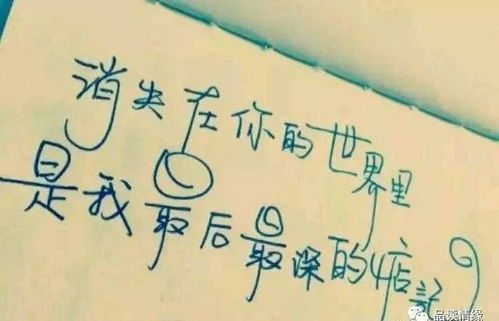 消失在你的世界里
是我最后最深的惦记
品谈情缘